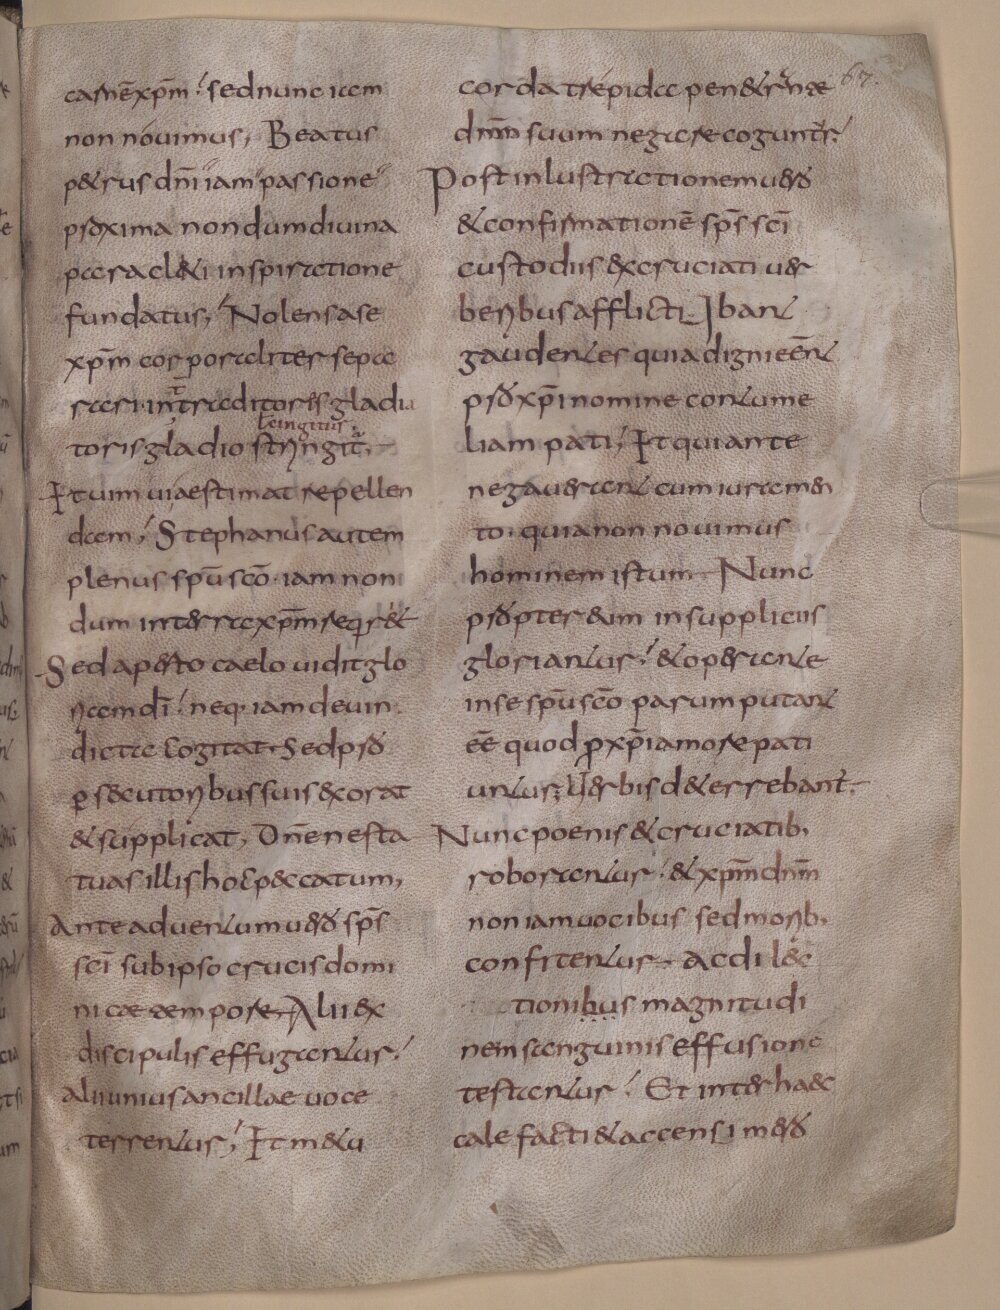 carnē xp̄m; sed nunc iam
non novimus, Beatus
petrus dn̄i iam passione
proxima non dum divina
paracleti inspiratione
fundatus, Nolens a se
xp̄m corporaliter sepa
rari. in traditoris gladia
cingitur
toris gladio stringit,
Et vim vi aestimat repellen
dam, Stephanus autem
plenus sp̄u sc̄o. iam non
dum in terra xp̄m requiret
Sed aperto caelo vidit glo
riam dī; neq. iam de vin
dicta cogitat. Sed pro
ꝑsecutoribus suis exorat
et supplicat, Dn̄e ne sta
tuas illis hoc peccatum,
Ante adventum vero sp̄s
sc̄i sub ipso crucis domi
nicae tempore, Alii ex
discipulis effugantur,
Alii unius ancillae voce
terrentur, Et metu
67.
corda trepida penetrante
dnm̄ suum negare coguntur,
Post inlustrationem vero
et confirmationē sp̄s sc̄i
custodiis excruciati ver
beribus afflicti. Ibant
gaudentes quia digni eēnt
pro xp̄i nomine contume
liam pati, Et qui ante
negaverant cum iuramen
to. quia non novimus
hominem istum. Nunc
propter eum in suppliciis
gloriantur, et operante
in se sp̄u sc̄o parum putant
eē quod ꝓ xp̄i amore pati
untur; Verbis deterrebant.
Nunc poenis et cruciatib,
roborantur. et xp̄m dnm̄
non iam vocibus sed morib,
confitentur. Ac dilec
tionibus magnitudi
nem sanguinis effusione
testantur, Et inter haec
calefacti et accensi mero